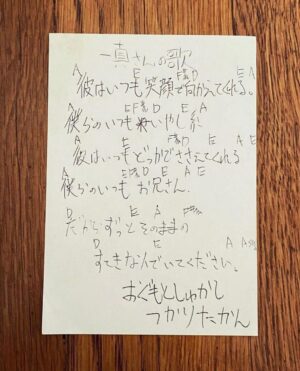 一真さんの歌
A E F#m D E A
彼はいつも笑顔で向かってくれる。
A E F#m D E A
僕らのいつもいやし系
A E F#m D E A E
彼はいつもどっかでささえてくれる
A E F#m D E A E
僕らのいつもお兄さん.
D E A F#m
だからずっとそのままの
D E A
すてきな人でいてください。
おくもとしゅかし
つかりたかん